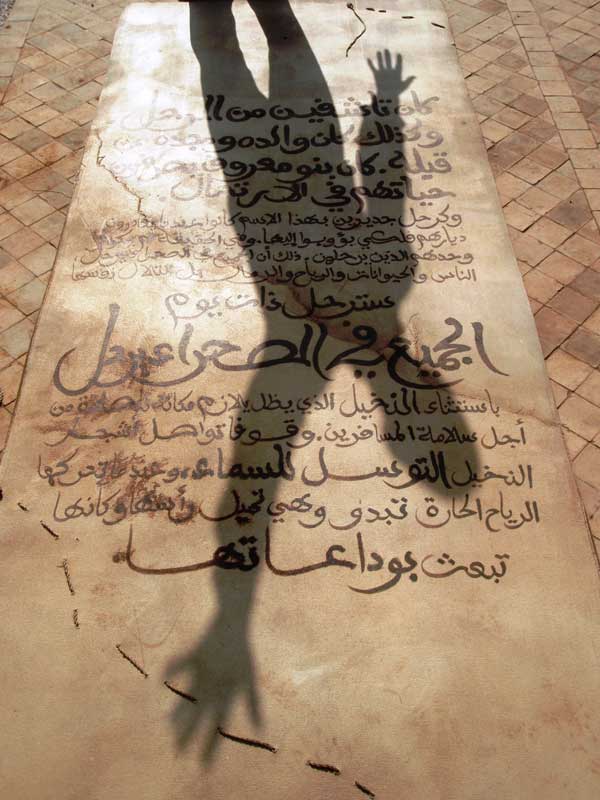 كان تاشفين من الرحل
وكذلك كان والده وجده من
قبله. كان بنو معروف يعرفون
حياتهم في الترحال.
وكرحل جديرين بهذا الاسم كانوا
ديارهم لكي يؤوبوا إليها. وفي الحقيقة
وحدهم الذين يرحلون. ذلك أن الجميع في الصحراء يرحل
الناس والحيوانات والرياح والرمال بل التلال نفسها
سترحل ذات يوم
الجميع في الصحراء يرحل
باستثناء النخيل الذي يظل يلازم مكانه من
أجل سلامة المسافرين. وقوفا تواصل أشجار
النخيل التوسل للسماء، وعندما تحركها
الرياح الحارة تبدو وهي تميل رأسها وكأنها
تبعث بوداعاتها